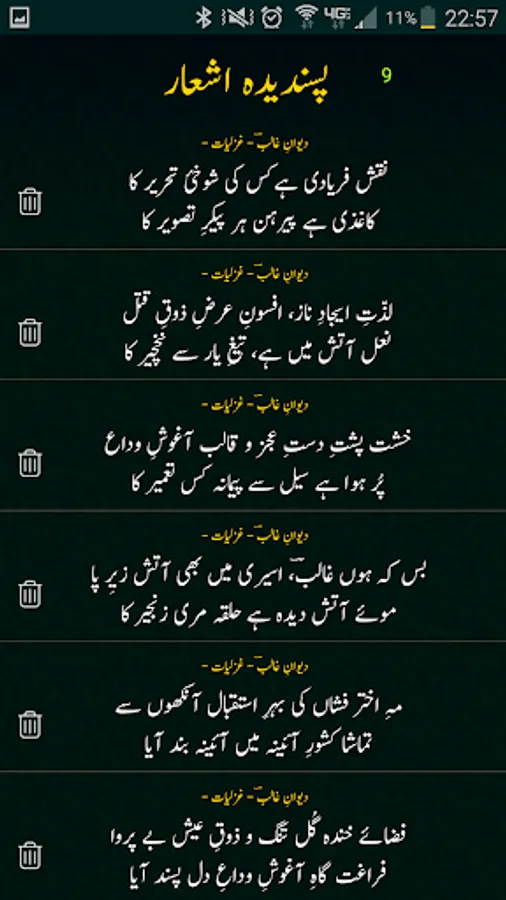 4G LTE 11% 22:57
پسندیدہ اشعار 9
دیوانِ غالبؔ - غزلیات -
نقش فریادی ہے کس کی شوخیٔ تحریر کا
کاغذی ہے پیرہن ہر پیکرِ تصویر کا
دیوانِ غالبؔ - غزلیات -
لذّتِ ایجادِ ناز، افسونِ عرضِ ذوقِ قتل
نعل آتش میں ہے، تیغِ یار سے نخچیر کا
دیوانِ غالبؔ - غزلیات -
خشت پشتِ دستِ عجز و قالب آغوشِ وداع
پُر ہوا ہے سیل سے پیمانہ کس تعمیر کا
دیوانِ غالبؔ - غزلیات -
بس کہ ہوں غالبؔ، اسیری میں بھی آتش زیرِ پا
موئے آتش دیدہ ہے حلقہ مری زنجیر کا
دیوانِ غالبؔ - غزلیات -
مہِ اختر فشاں کی بہرِ استقبال آنکھوں سے
تماشا کشورِ آئینہ میں آئینہ بند آیا
دیوانِ غالبؔ - غزلیات -
فضائے خندہ گُل تنگ و ذوقِ عیش بے پروا
فراغت گاہِ آغوشِ وداعِ دل پسند آیا